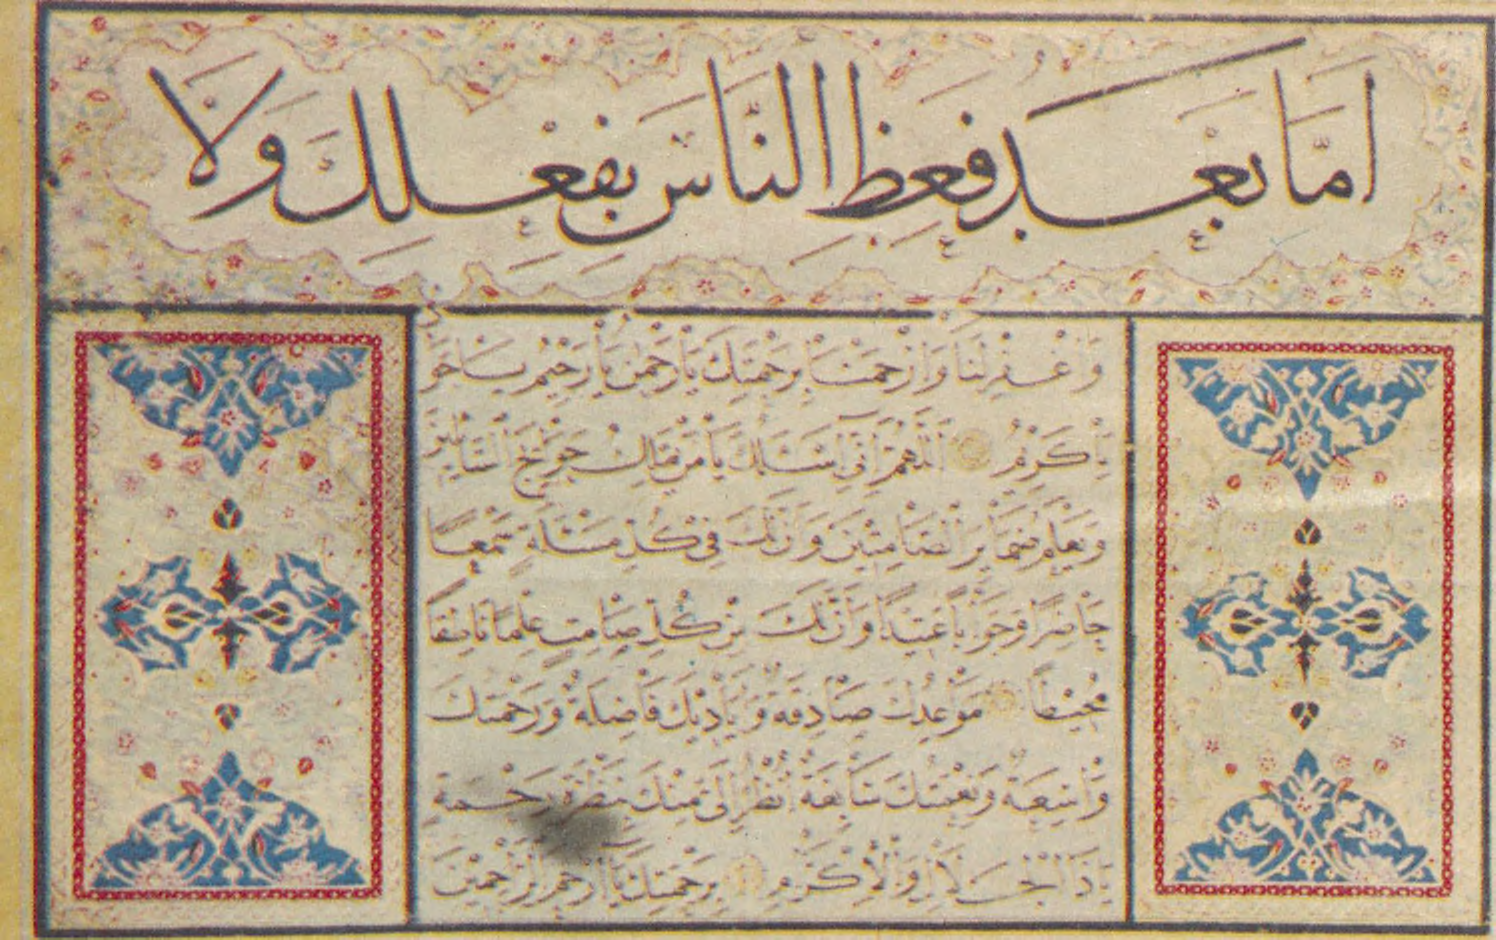 اَمَّا بَعْد فَعِظِ النَّاسَ بِفِعْلِكَ وَلَا
وَاغْفِرْ لَنَا وَارْحَمْنَا بِرَحْمَتِكَ يَا رَحْمٰنُ يَا رَحِيْمُ
يَا كَرِيْمُ اَللّٰهُمَّ اِنِّي اَسْئَلُكَ يَا مَنْ يَمْلِكُ حَوَائِجَ السَّائِلِينَ
وَيَعْلَمُ ضَمَايِرَ الصَّامِتِيْنَ وَاِنَّ لَكَ فِي كُلِّ مَسْئَلَةٍ سَمْعًا
حَاضِرًا وَجَوَابًا عَتِيْدًا وَاِنَّ لَكَ مِنْ كُلِّ صَامِتٍ عِلْمًا نَاطِقًا
مُحِيْطًا مَوَاعِدُكَ صَادِقَةٌ وَاَيَادِيْكَ فَاضِلَةٌ وَرَحْمَتُكَ
وَاسِعَةٌ وَنِعْمَتُكَ سَابِغَةٌ اُنْظُرْ اِلَيَّ مِنْكَ نَظْرَةَ رَحْمَةٍ
يَا ذَا الْجَلَالِ وَالْاِكْرَامِ بِرَحْمَتِكَ يَا اَرْحَمَ الرَّاحِمِيْنَ